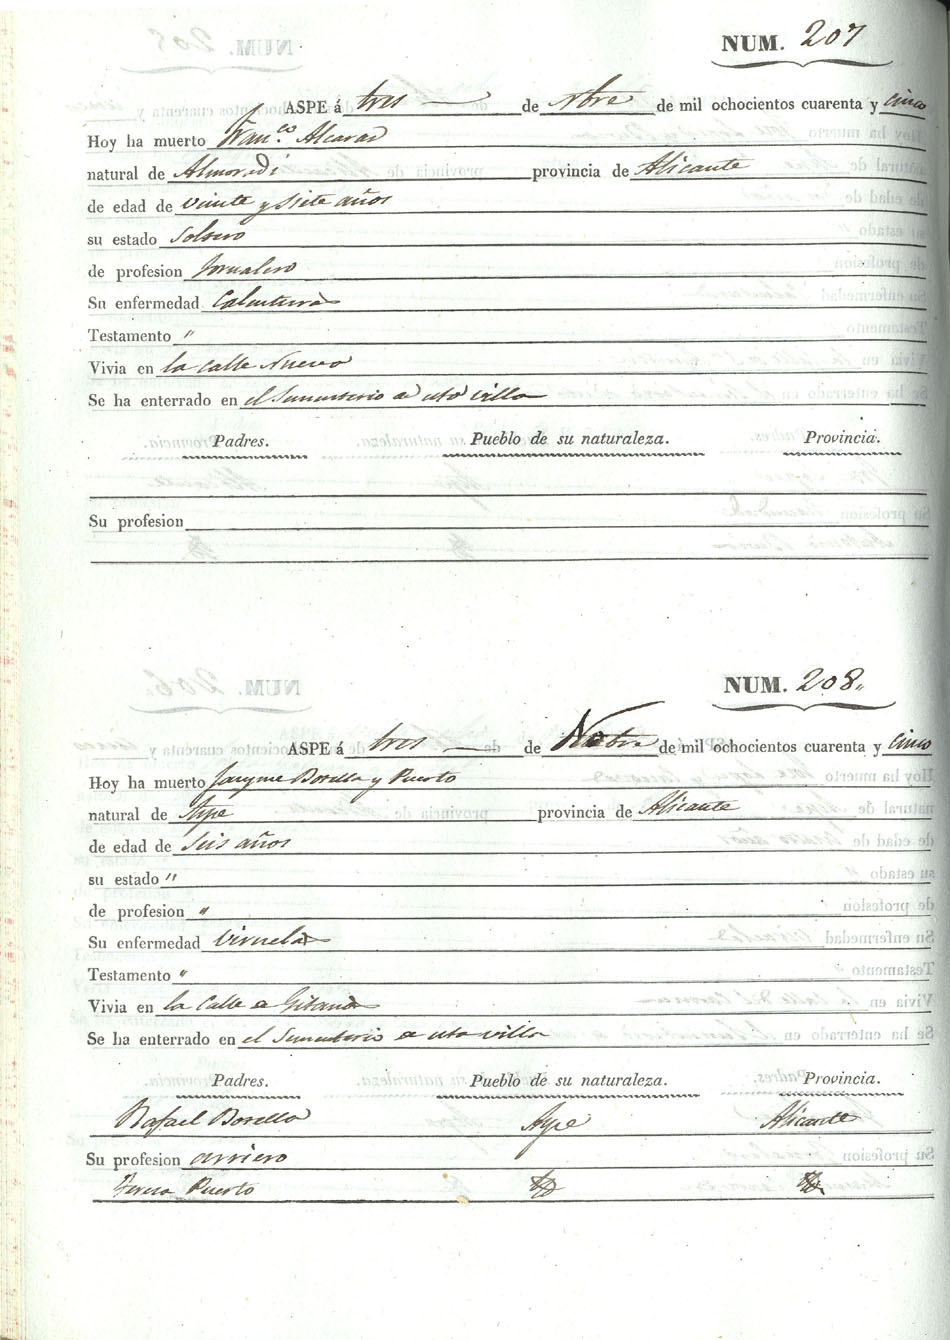 NUM. 207
ASPE á tres de Nbre de mil ochocientos cuarenta y cinco
Hoy ha muerto Fran.co Alcaras
natural de Almoradi provincia de Alicante
de edad de veinte y siete años
su estado Soltero
de profesion Jornalero
Su enfermedad Calenturas
Testamento "
Vivia en la Calle Nueva
Se ha enterrado en el Sementerio de esta villa
Padres. Pueblo de su naturaleza. Provincia.
Su profesion
NUM. 208.
ASPE á tres de Nobre de mil ochocientos cuarenta y cinco
Hoy ha muerto Jayme Botella y Puerto
natural de Aspe provincia de Alicante
de edad de Seis años
su estado "
de profesion "
Su enfermedad Viruelas
Testamento "
Vivia en la Calle de Gitanos
Se ha enterrado en el Sementerio de esta villa
Padres. Pueblo de su naturaleza. Provincia.
Rafael Botella Aspe Alicante
Su profesion arriero
Teresa Puerto